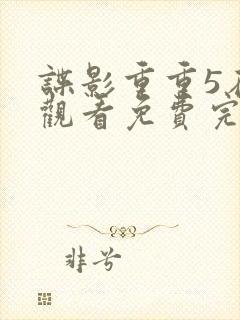 諜影重重5
觀看免費完
非兮